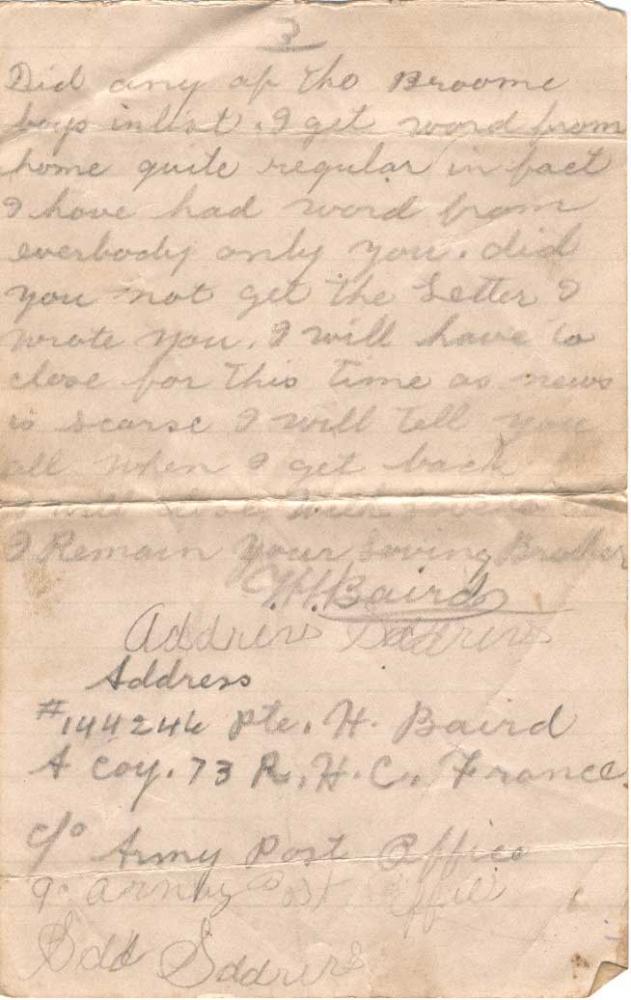 3
Did any of the Broome
boys inlist. I get word from
home quite regular in fact
I have had word from
everbody only you. did
you not get the Letter I
wrote you. I will have to
close for this time as news
is scarse I will Tell you
all when I get back
I will close with love to
I Remain your Loving Brother
H. Baird
Address Address
Address
#144246 Pte. H. Baird
A Coy. 73 R. H. C. France.
c/o Army Post Office
c/o army Post Office
Add Address